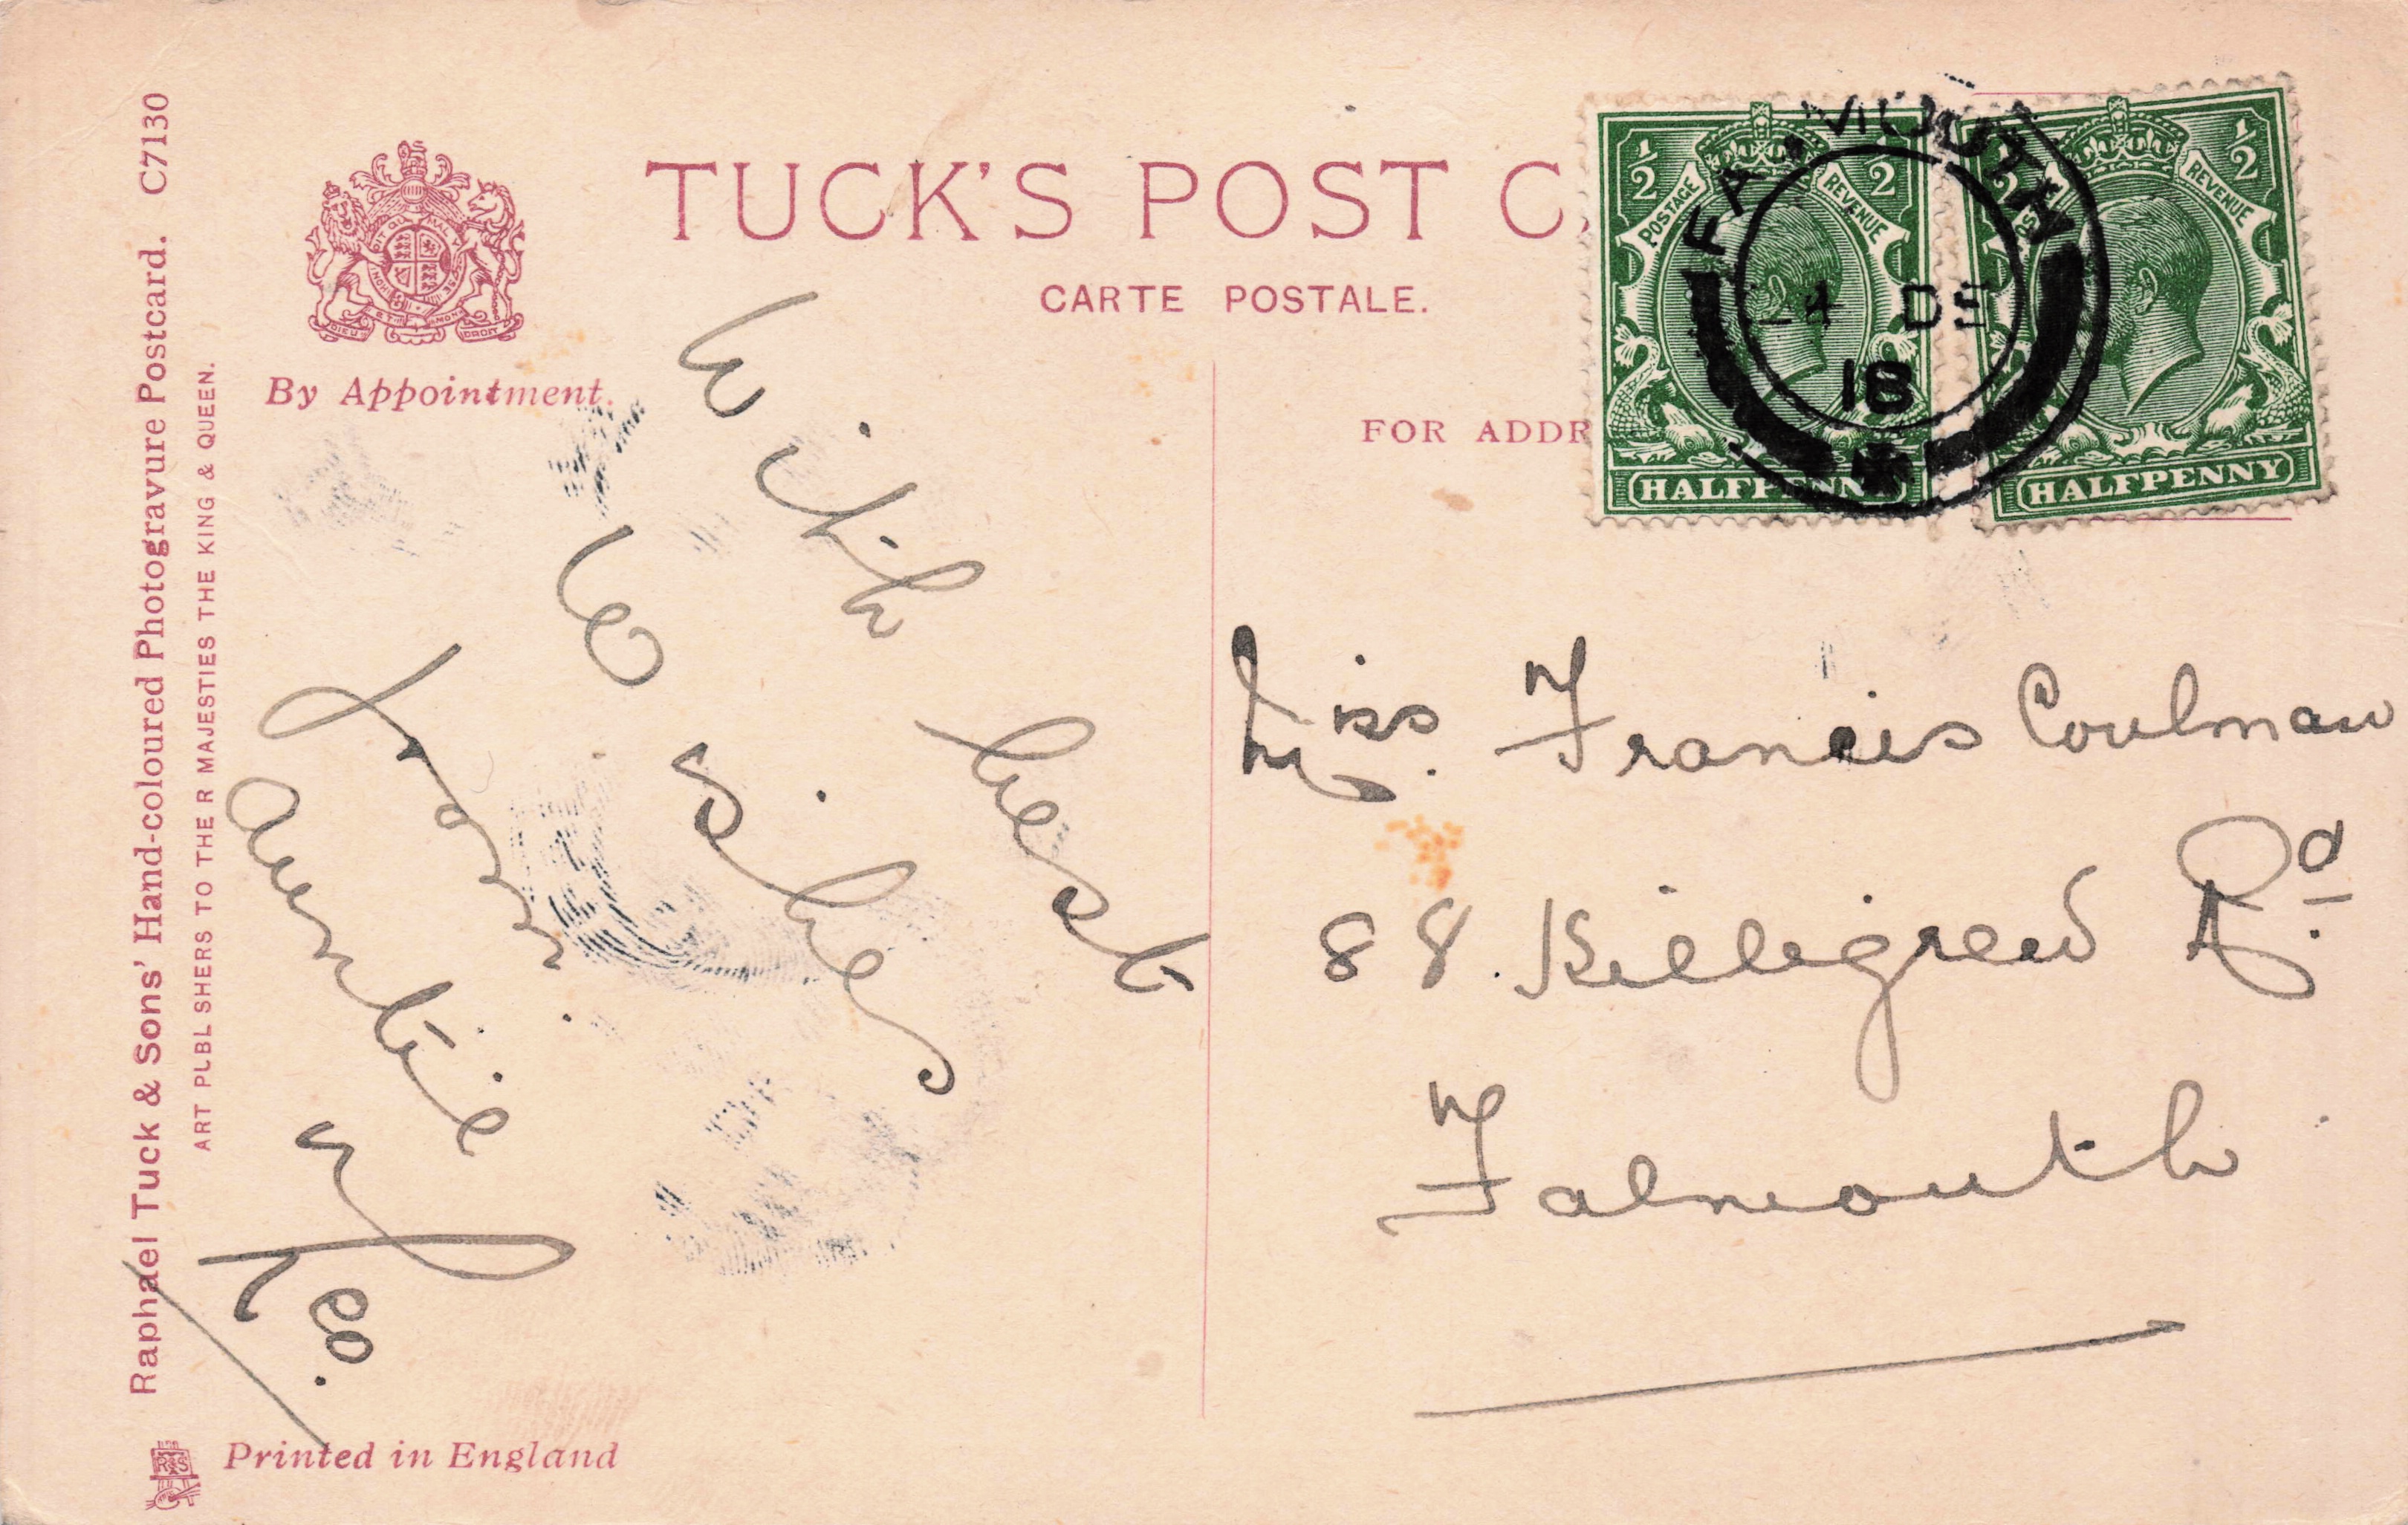 Raphael Tuck & Sons' Hand-coloured Photogravure Postcard. C7130
ART PUBL SHERS TO THE R MAJESTIES THE KING & QUEEN.
By Appointment.
TUCK'S POST C
CARTE POSTALE.
FOR ADDR
½ ½
POSTAGE REVENUE
HALFPENNY
½ ½
REVENUE
HALFPENNY
FALMOUTH
DE
18
DIEU ET MON DROIT
With best
Wishes
from
Auntie
Flo.
Miss. Francis Coulman
88. Killigrew Rd
Falmouth
Printed in England